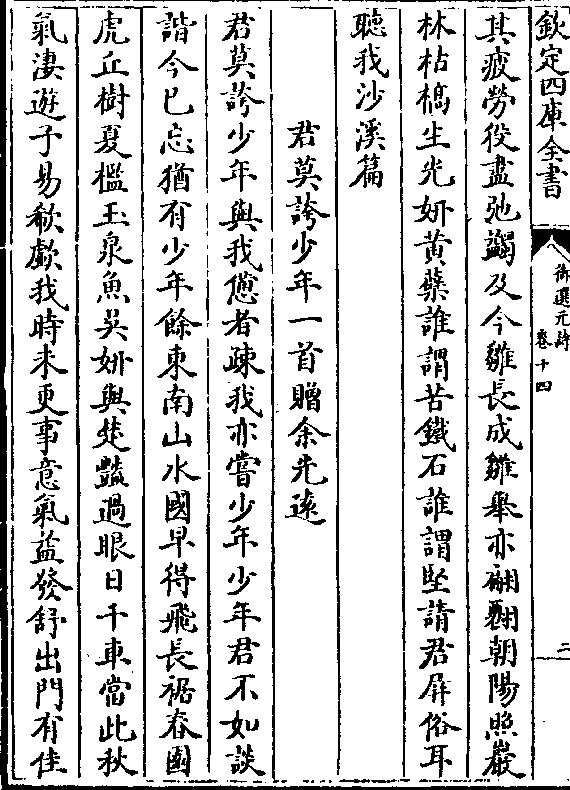 欽定四庫全書
御選元詩
卷十四
二
其疲勞役盡弛蠲及今雛長成雛舉亦翩翾朝陽照巖
林枯槁生光妍黄蘗誰謂苦鐵石誰謂堅請君屏俗耳
聽我沙溪篇
君莫誇少年一首贈余先逺
君莫誇少年與我儓者疎我亦嘗少年少年君不如談
諧今已忘猶有少年餘東南山水國早得飛長裾春園
虎丘樹夏檻玉泉魚吳妍與楚豔過眼日千車當此秋
氣淒遊子易欷歔我時未更事意氣益發舒出門有佳